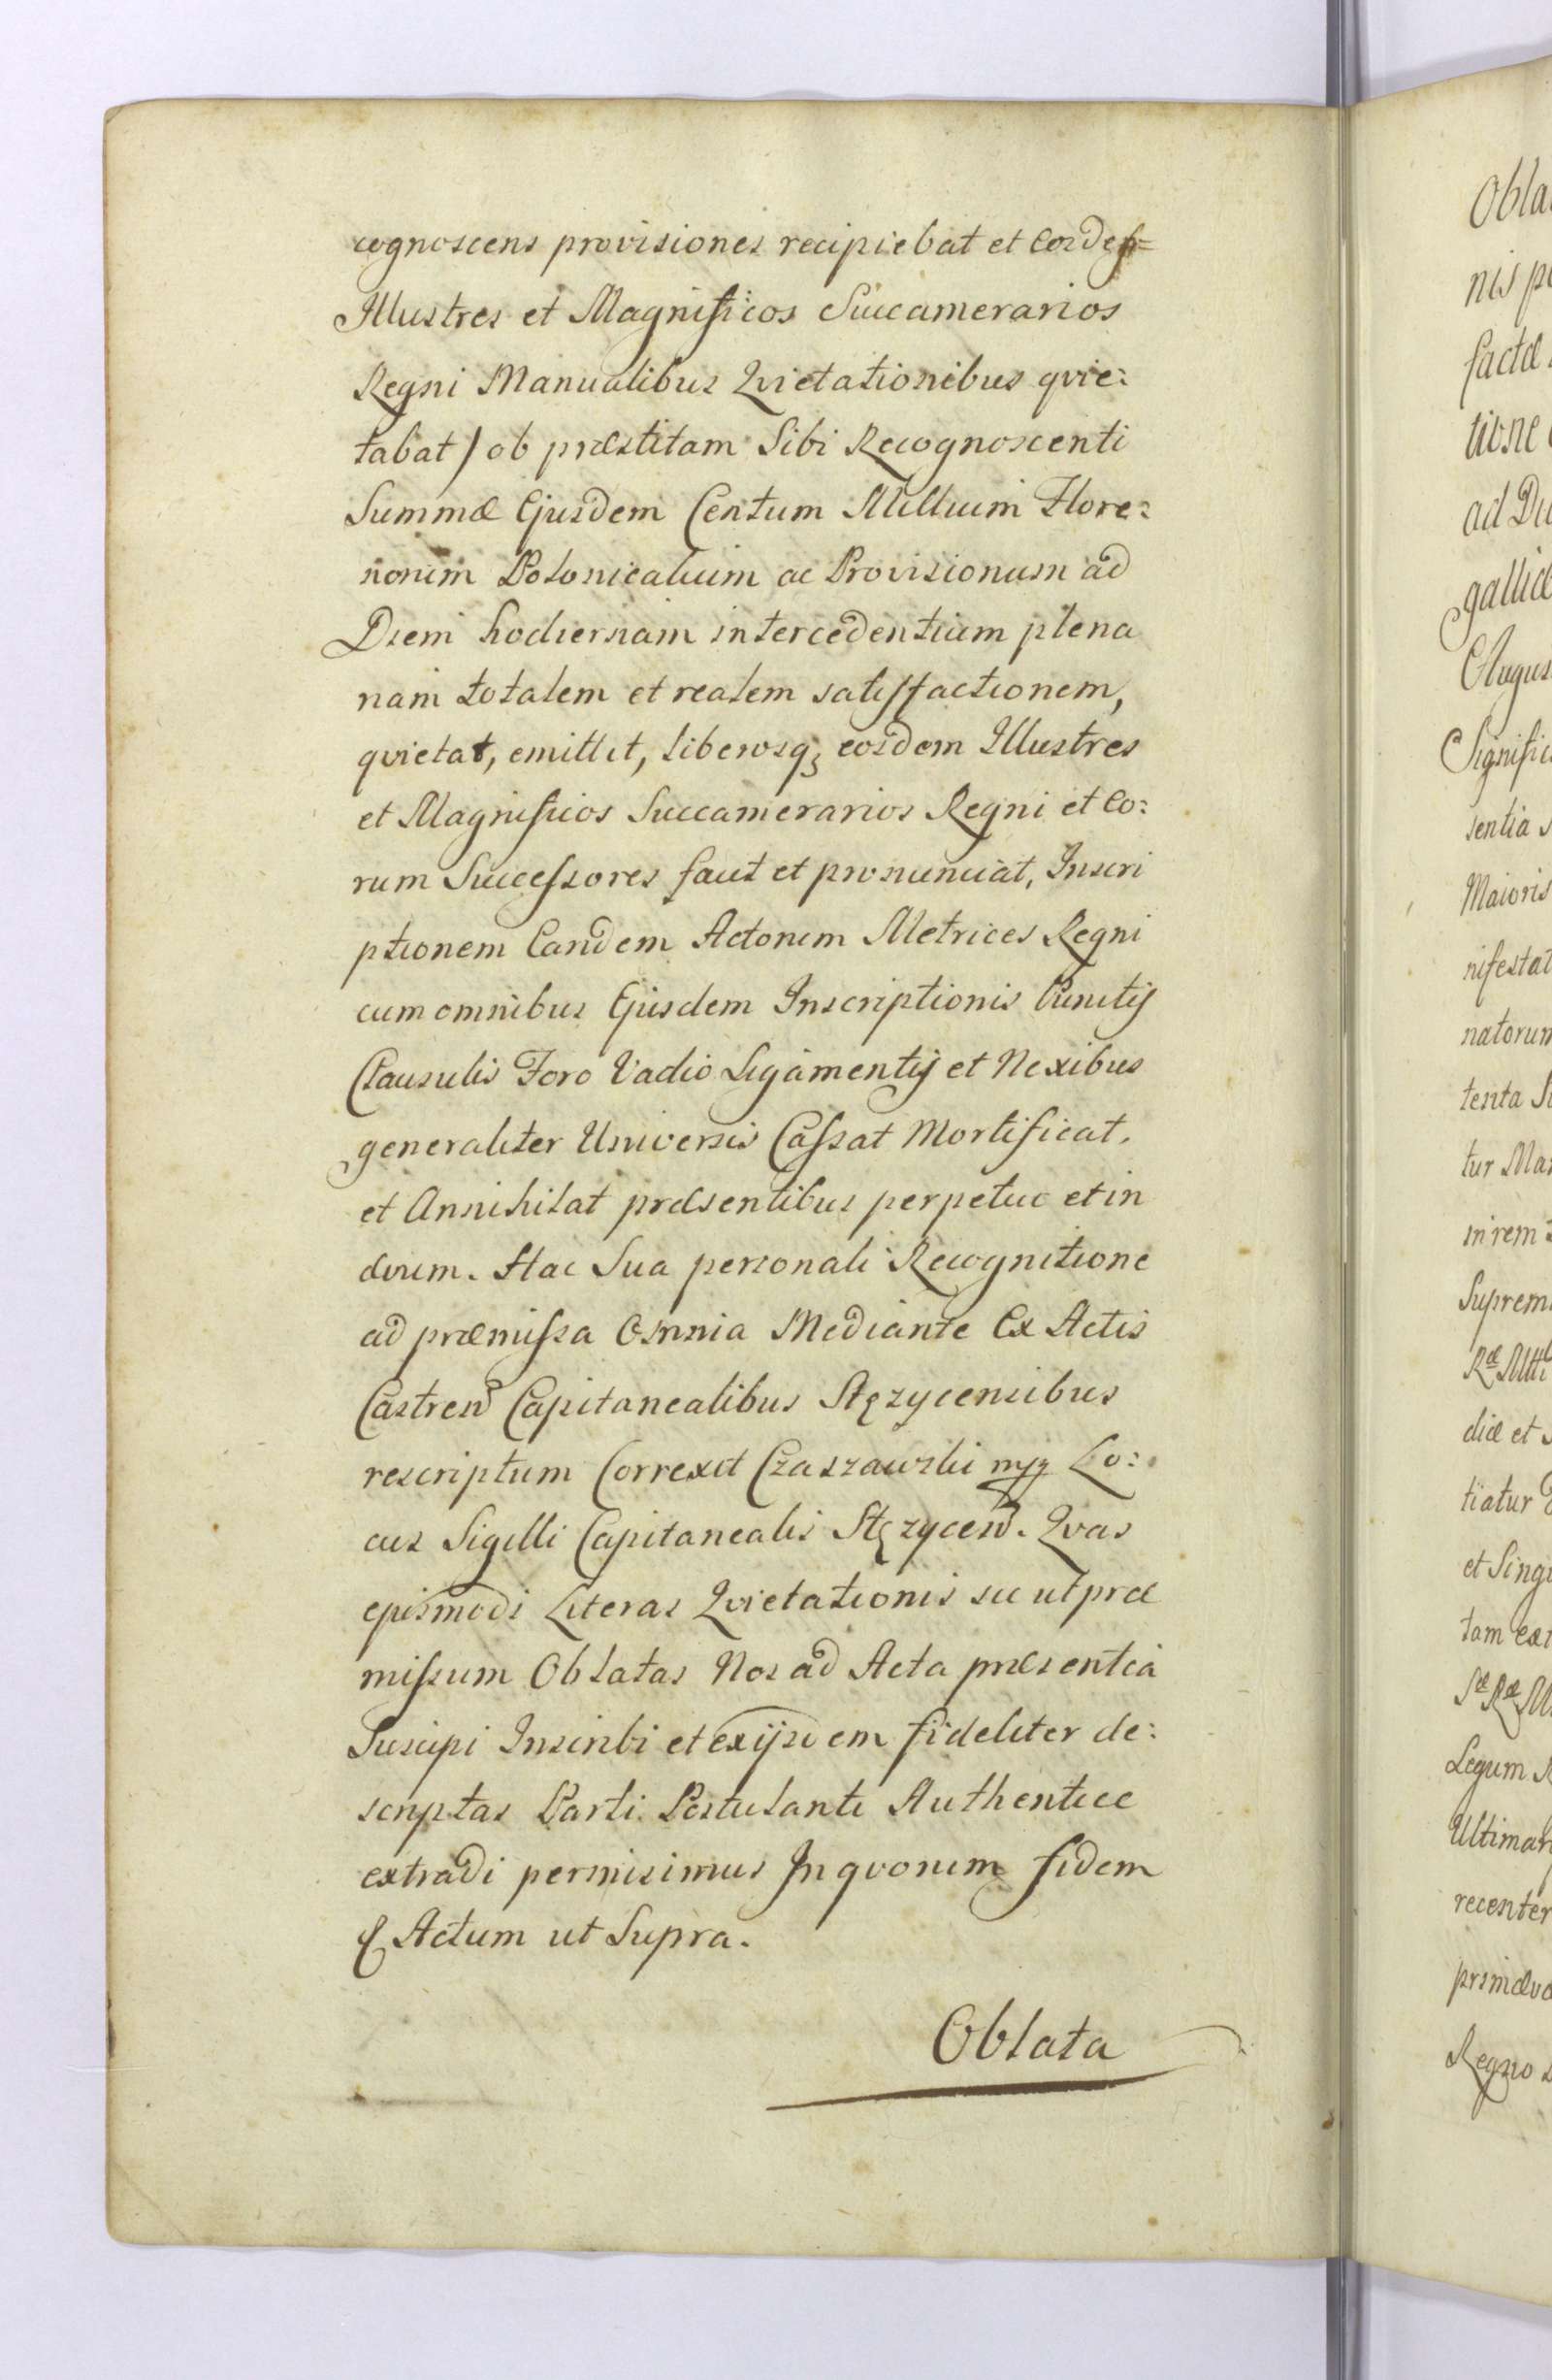 cognoscens provisiones recipiebat et Eosdem
Illustres et Magnificos Succamerarios
Regni Manualibus Qvietationibus qvie:
tabat / ob præstitam Sibi Recognoscenti
Summæ Ejusdem Centum Millium Flore:
norum Polonicalium ac Provisionum ad
Diem hodiernam intercedentium plena
nam totalem et realem satisfactionem,
qvietat, emittit, liberosq; eosdem Illustres
et Magnificos Succamerarios Regni et Eo:
rum Successores facit et pronunciat, Inscri
ptionem Eandem Actorum Metrices Regni
cum omnibus Ejusdem Inscriptionis Punctis
Clausulis Foro Vadio Ligamentis et Nexibus
generaliter Universis Cassat Mortificat,
et Annihilat præsentibus perpetuo et in
ævum. Hac Sua personali Recognitione
ad præmissa Omnia Mediante Ex Actis
Castren Capitanealibus Stężycensibus
rescriptum Correxit Czaszawski mp Lo:
cus Sigilli Capitanealis Stężycen. Qvas
ejusmodi Literas Qvietationis sic ut præ
missum Oblatas Nos ad Acta præsentia
Suscipi Inscribi et ex ijsdem fideliter de:
scriptas Parti Postulanti Authentice
extradi permisimus In qvorum fidem
& Actum ut Supra.
Oblata
Obla
nis p
factæ
tione
ad Du
gallic
Augus
Signific
sentia s
Maioris
nifestat
natorum
tenta S
tur Ma
in rem
Suprem
diæ et
tiatur
et Singu
tam ex
Legum
Ultimar
recenter
primæv
Regno